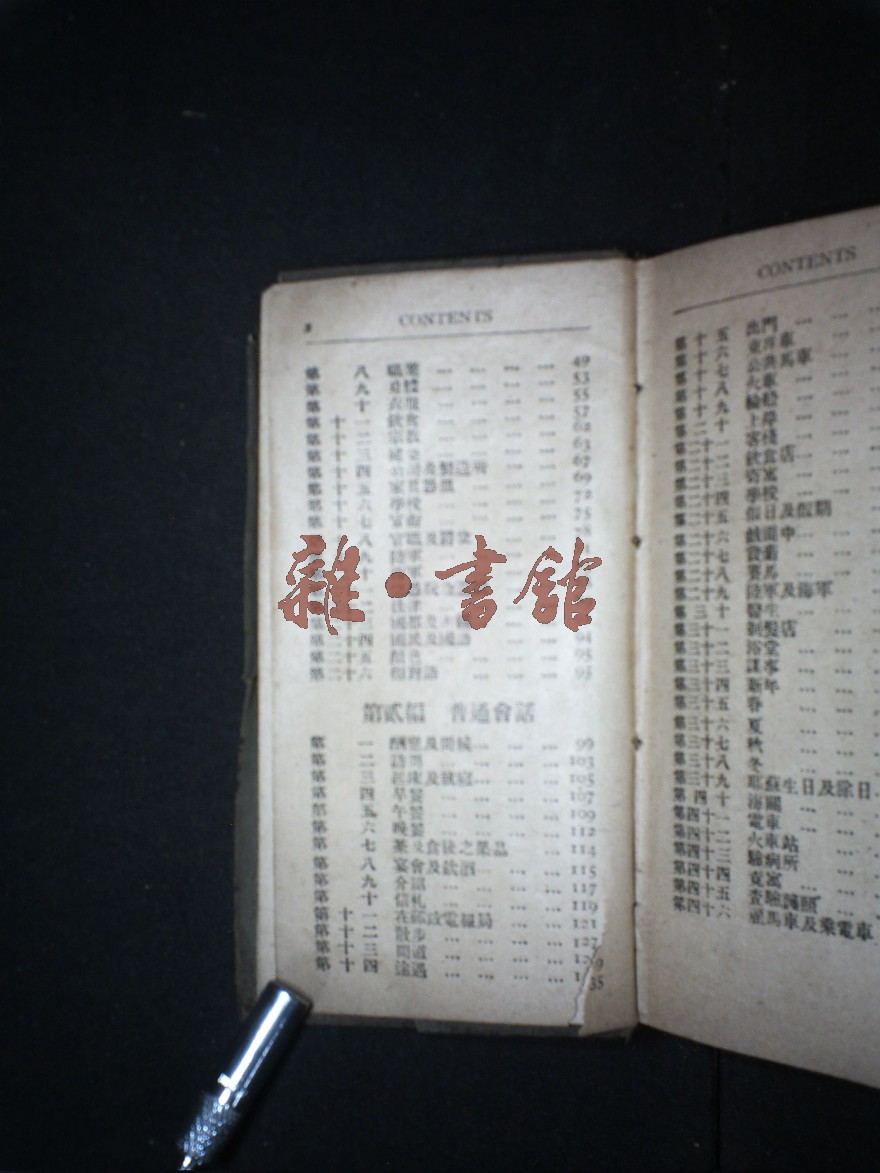 2 CONTENTS
第 八 職業 ... ... ... ... 49
第 九 ... ... ... ... 53
第 十 衣服 ... ... ... ... 55
第 十 一 飲食 ... ... ... ... 57
第 十 二 宗教 ... ... ... ... 62
第 十 三 ... ... ... ... 63
第 十 四 及製造所 ... ... 67
第 十 五 家具器皿 ... ... ... 69
第 十 六 學校 ... ... ... ... 72
第 十 七 官 ... ... ... ... 75
八 官職及爵 ... ...
九 陸軍
十 軍
雜•書館
一 法律
國
第二十四 國民及國語 ... ... ... 94
第二十五 顏色 ... ... ... ... 95
第二十六 相對語 ... ... ... ... 95
第貳編 普通會話
第 一 酬應及問候... ... ... 99
第 二 訪問 ... ... ... ... 103
第 三 起床及就寢... ... ... 105
第 四 早餐 ... ... ... ... 107
第 五 午餐 ... ... ... ... 109
第 六 晚餐 ... ... ... ... 112
第 七 茶及食後之菓品 ... ... 114
第 八 宴會及飲酒... ... ... 115
第 九 介紹 ... ... ... ... 117
第 十 信札 ... ... ... ... 119
第 十 一 在郵政電報局 ... ... 121
第 十 二 散步 ... ... ... ... 127
第 十 三 問道 ... ... ... ... 129
第 十 四 途遇 ... ... ... ... 135
CONTENTS
第 十 五 出門 ... ... ...
第 十 六 東洋車 ... ...
第 十 七 公共馬車 ... ...
第 十 八 火車 ... ... ...
第 十 九 輪船 ... ... ...
第 二 十 上岸 ... ... ...
第二十一 客棧 ... ... ...
第二十二 飲食店... ... ...
第二十三 寄寓 ... ... ...
第二十四 學校 ... ... ...
第二十五 假日及假期 ...
第二十六 戲園中... ... ...
第二十七 賞菊 ... ... ...
第二十八 賽馬 ... ... ...
第二十九 陸軍及海軍 ...
第 三 十 醫生 ... ... ...
第三十一 剃髮店 ... ...
第三十二 浴堂 ... ... ...
第三十三 謀事 ... ... ...
第三十四 新年 ... ... ...
第三十五 春 ... ... ...
第三十六 夏 ... ... ...
第三十七 秋 ... ... ...
第三十八 冬 ... ... ...
第三十九 耶蘇生日及除日...
第 四 十 海關 ... ... ...
第四十一 電車 ... ... ...
第四十二 火車站 ... ...
第四十三 驗病所 ... ...
第四十四 覓寓 ... ... ...
第四十五 查驗護照 ... ...
第四十六 雇馬車及乘電車